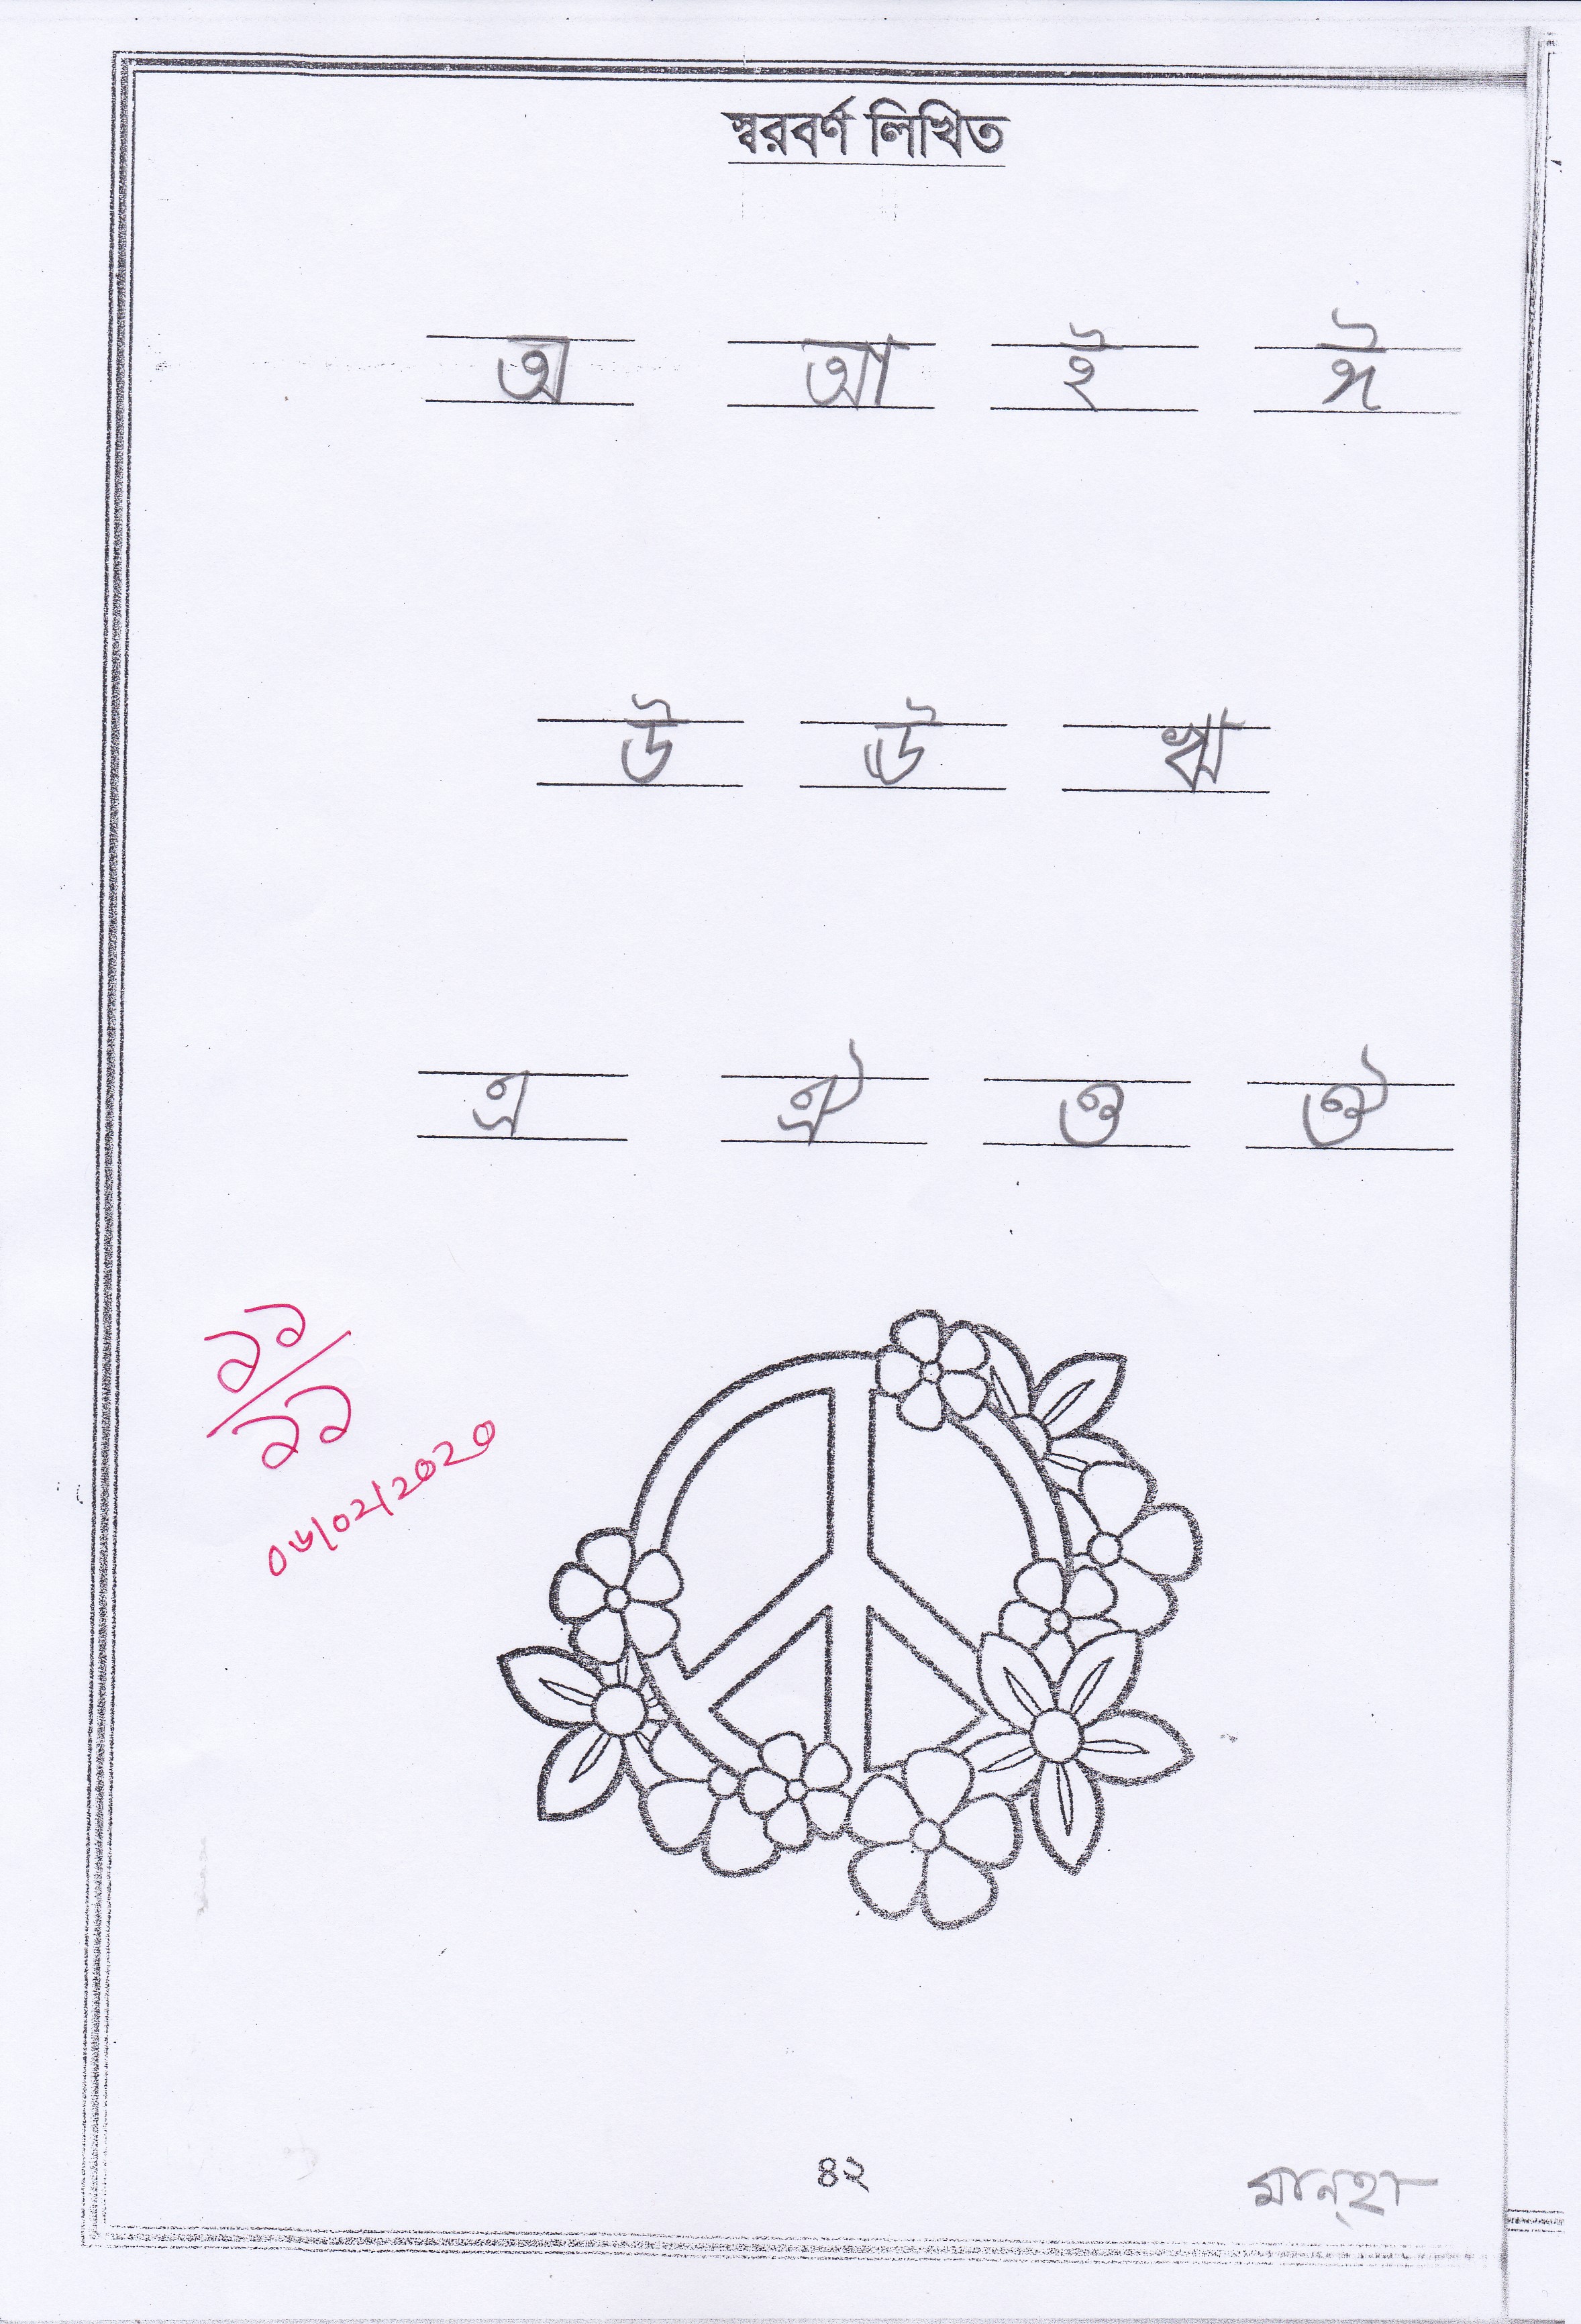 স্বরবর্ণ লিখিত
অ আ ই ঈ
উ ঊ ঋ
এ ঐ ও ঔ
১১/১১
০৬/০২/২০২০
৪২
মান্‌হা